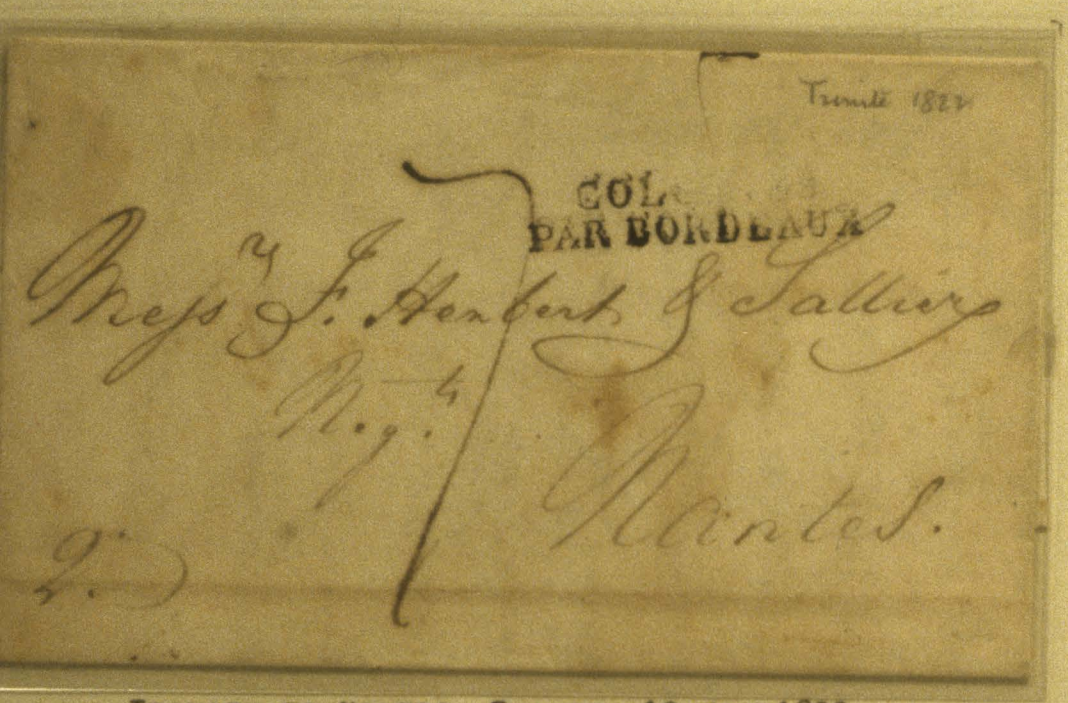 Trinité 1822
COL
PAR BORDEAUX
7
Mess.rs J. Herbert &
N.g.ts
Nantes.
2.)